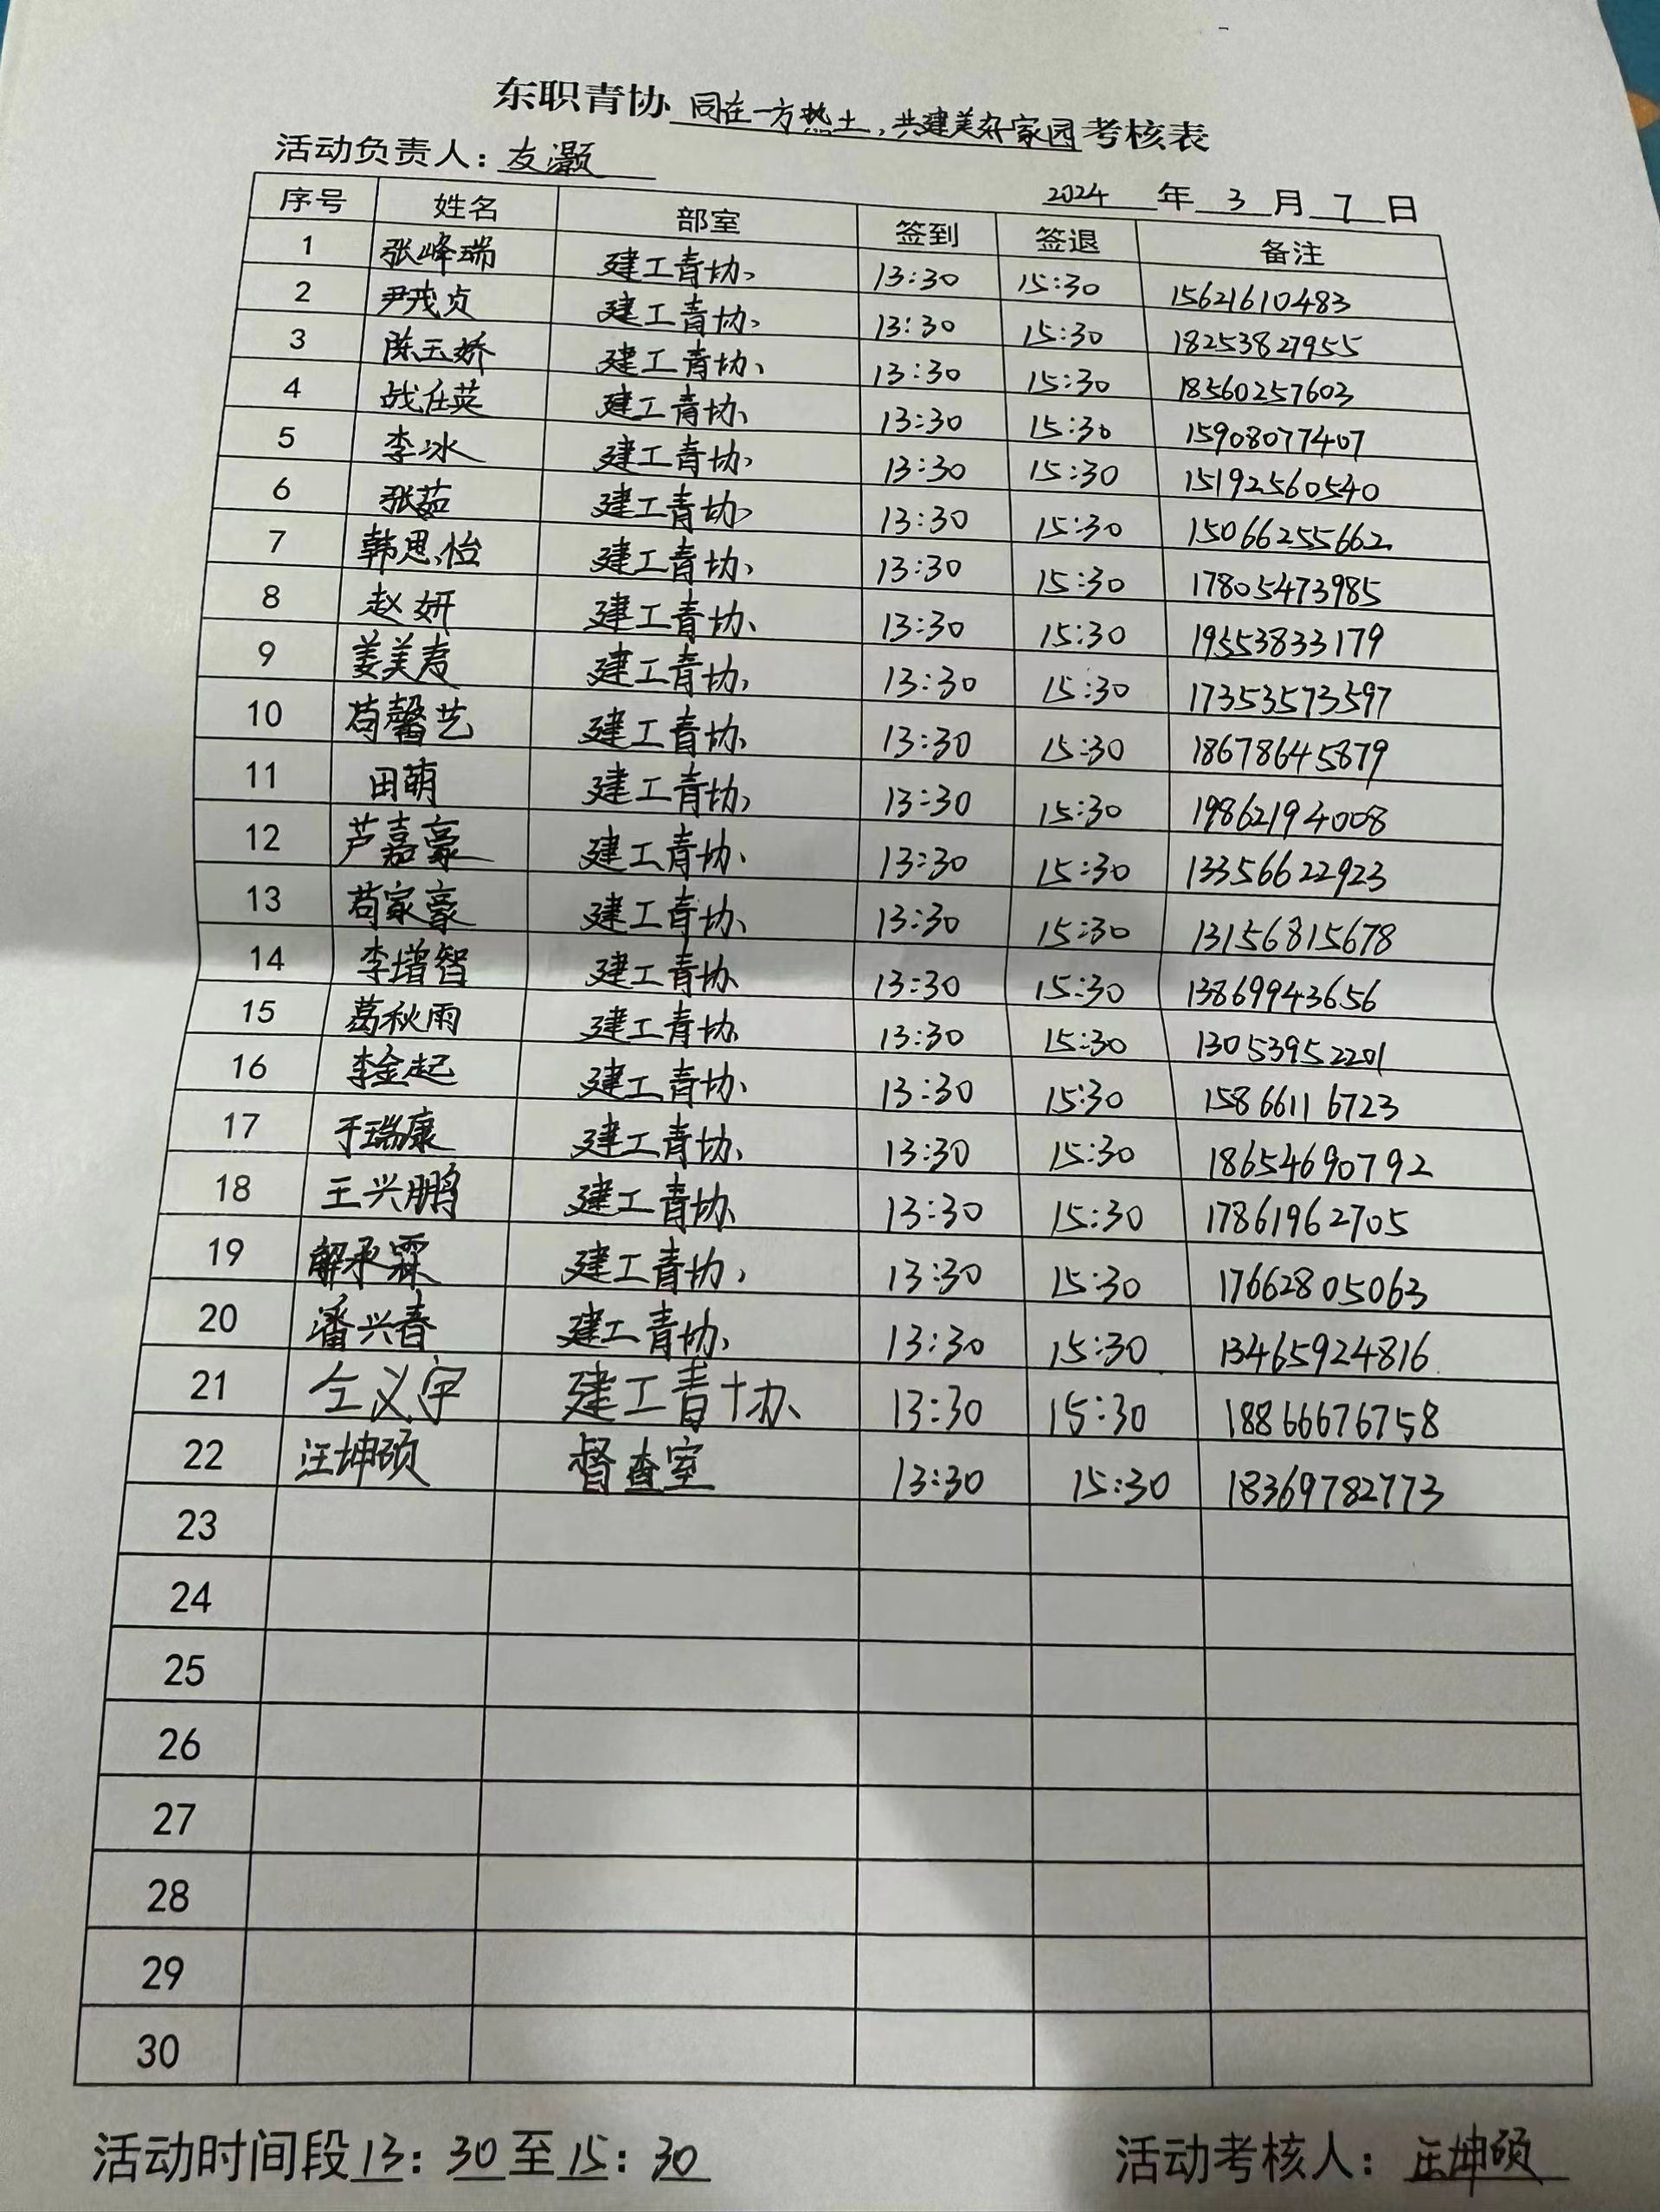 东职青协 同在一方热土，共建美好家园 考核表
活动负责人：友灏
2024 年 3 月 7 日
序号 姓名 部室 签到 签退 备注
1 张峰瑞 建工青协 13:30 15:30 15621610483
2 尹戎贞 建工青协 13:30 15:30 18253827955
3 陈玉娇 建工青协 13:30 15:30 18560257603
4 战任英 建工青协 13:30 15:30 15908077407
5 李冰 建工青协 13:30 15:30 15192560540
6 张茹 建工青协 13:30 15:30 15066255662
7 韩思怡 建工青协 13:30 15:30 17805473985
8 赵妍 建工青协 13:30 15:30 19553833179
9 姜美寿 建工青协 13:30 15:30 17353573597
10 苟馨艺 建工青协 13:30 15:30 18678645879
11 田萌 建工青协 13:30 15:30 19862194008
12 芦嘉豪 建工青协 13:30 15:30 13356622923
13 苟家豪 建工青协 13:30 15:30 13156815678
14 李增智 建工青协 13:30 15:30 13869943656
15 葛秋雨 建工青协 13:30 15:30 13053952201
16 李金起 建工青协 13:30 15:30 15866116723
17 于瑞康 建工青协 13:30 15:30 18654690792
18 王兴鹏 建工青协 13:30 15:30 17861962705
19 解承霖 建工青协 13:30 15:30 17662805063
20 潘兴春 建工青协 13:30 15:30 13465924816
21 仝义宇 建工青协 13:30 15:30 18866676758
22 汪坤硕 督查室 13:30 15:30 18369782773
23
24
25
26
27
28
29
30
活动时间段13：30至15：30 活动考核人：汪坤硕